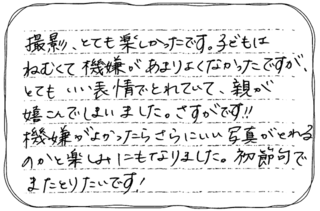 撮影、とても楽しかったです。子どもは
ねむくて機嫌があまりよくなかったですが、
とてもいい表情でとれていて、親が
嬉こんでしまいました。さすがです!!
機嫌がよかったらさらにいい写真がとれる
のかと楽しみにもなりました。初節句で
またとりたいです!